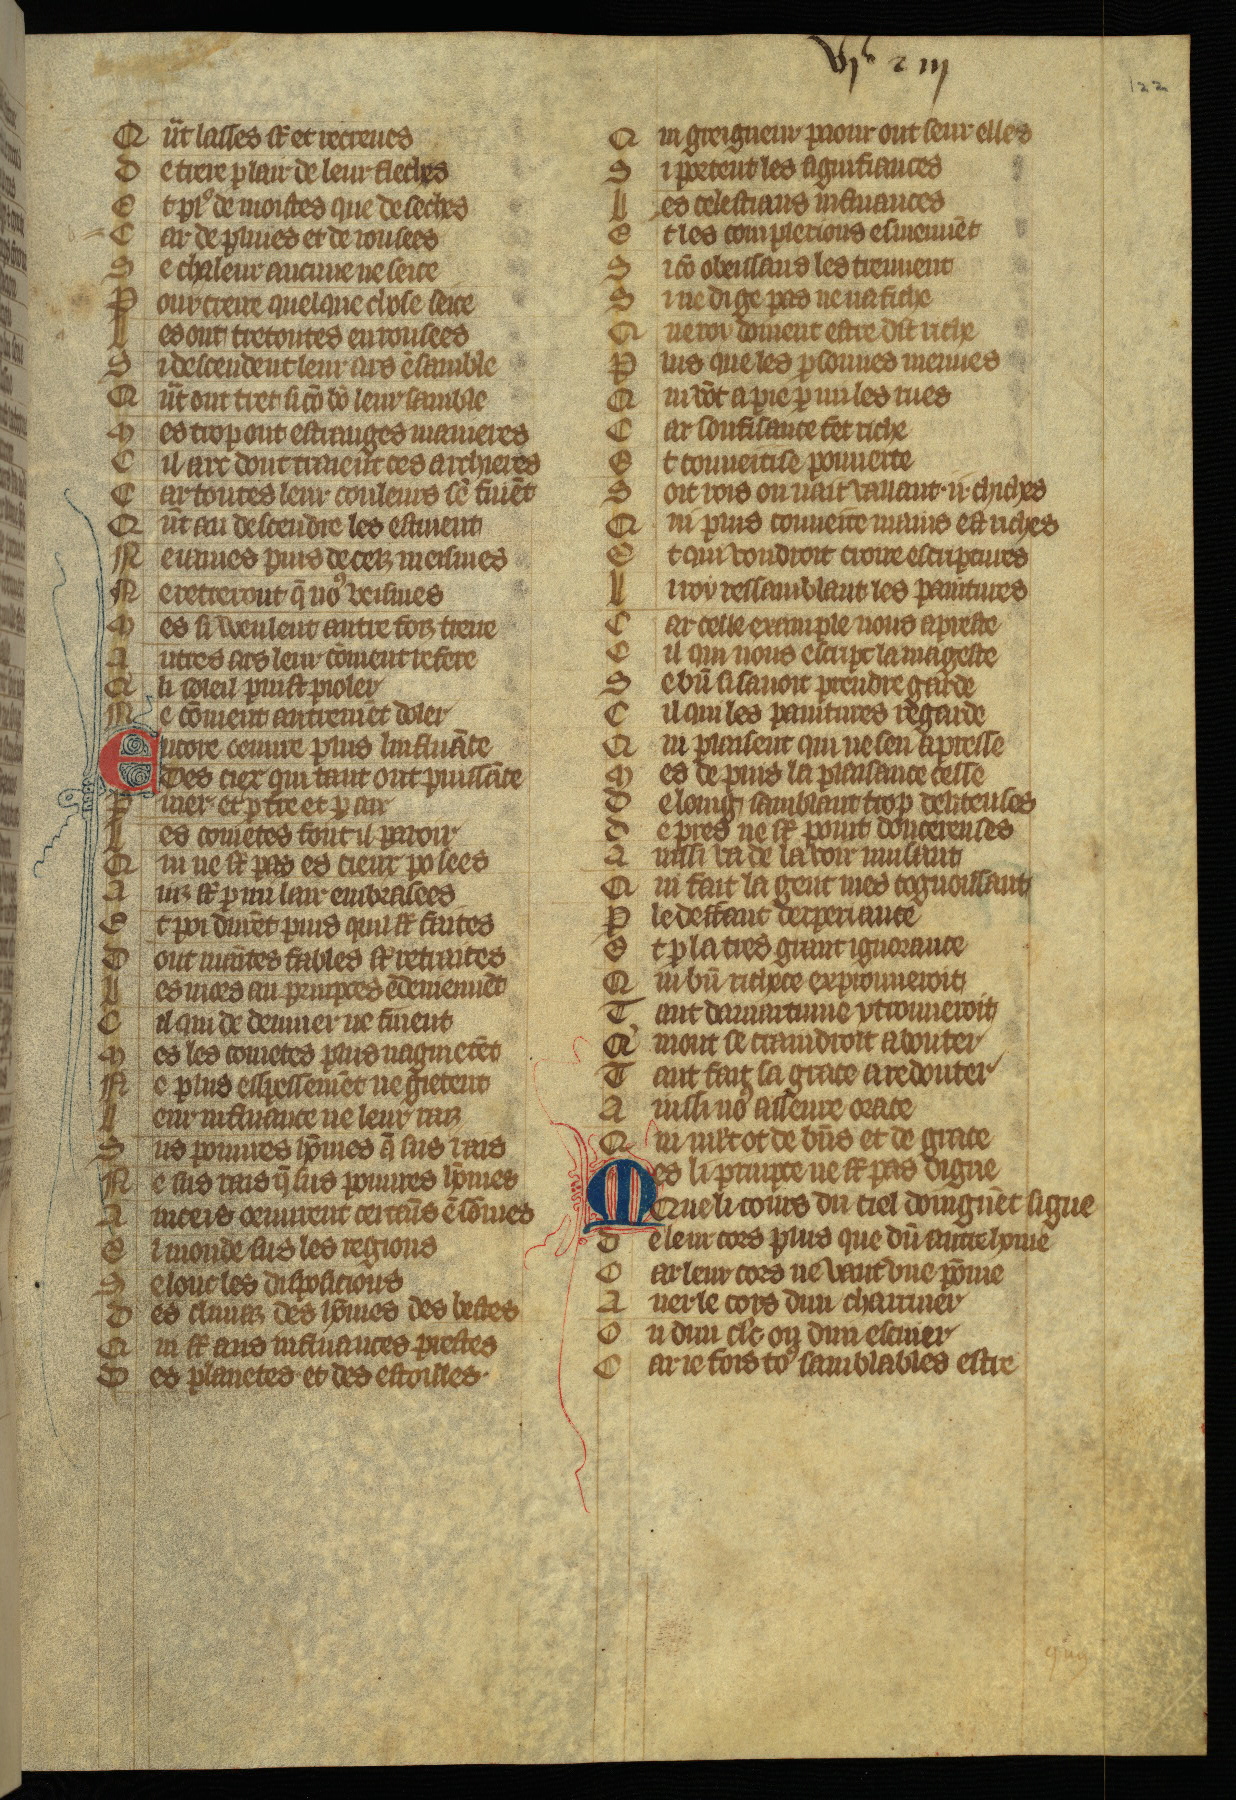 vjᶜ z iij
122
Q̄nt lasses sͭ et recreues
D e trere p lair de leur fleches
E t plꝰ de moistes que de seches
C ar de pluies et de rousees
S e chaleur aucune ne seice
P our trere quelque chose seice
L es ont trestoutes enrousees
S i descendent leur ars ēsamble
Q̄nt ont tret si cō bō leur samble
M es trop ont estranges manieres
C il arc dont traient ces archieres
C ar toutes leur couleurs sē fuiēt
Q̄nt au descendre les estuient
N e iames puis de celz meismes
N e retreront q̄ noꝰ veismes
M es si weulent autre foiz trere
A utres ars leur cōuient refere
Q li soleil puist pioler
N e cōuient autremēt doler
E ncore oeuure plus linfluāce
Des ciex qui tant ont puissāce
P ar mer et p t̄re et p air
L es cometes font il paroir
Q ui ne sͭ pas es cieux posees
A inz sͭ p mi lair embrasees
E t poi durēt puis quil sͭ faites
D ont maītes fables sͭ retraites
L es mors au princes ē deuienēt
C il qui de deuiner ne finent
M es les cometes plus nagueitēt
N e plus espessemēt ne gietent
L eur influance ne leur raiz
S us poures hōmes q̄ sus rois
N e sus rois q̄ sus poures hōmes
A inceis oeuurent certaīs ē sōmes
E l monde sus les regions
S elonc les disposicions
D es climaz des hōmes des bestes
Q ui sͭ aus influances prestes
D es planetes et des estoilles
Q ui greigneur pooir ont seur elles
S i portent les signifiances
L es celestians influances
E t les complexions esmeuuēt
S i cō obeissans les treuuent
S i ne di ge pas ne nafiche
Q ue roy doiuent estre dit riche
P lus que les psonnes menues
Q ui vōt a pie p mi les rues
C ar soufisance fet riche
E t couueitise pouuerte
S oit rois ou nait vaillant .ij. chiches
Q ui plus couueite mains est riches
E t qui voudroit croire escriptures
L i roy ressamblant les paintures
C ar celle example nous apreste
C il qui nous escript lamageste
S e bn̄ si sauoit prendre garde
C il qui les paintures regarde
Q ui plaisent qui ne sen apresse
M es de pres la plaisance cesse
D e loing samblant trop deliteuses
D e pres ne sͭ point doucereuses
A inssi va de lauoir puissant
Q ui fait la gent mescognoissant
P le deffaut dexperiance
E t p la tres grant ignorance
Q ui bn̄ richece exprouueroit
T ant damartume y trouueroit
Q mont se craindroit a bouter
T ant fait sa grace a redouter
A inssi noꝰ asseure orace
Q ui mr̄t ot de bn̄s et de grace
M es li prince ne sͭ pas digne
Que li cours du ciel doingnēt signe
D e leur cors plus que dū autre hōme
C ar leur cors ne vaut vne pōme
A uec le cors dun charruier
O u dun clʼc ou dun escuier
C ar ie fois toꝰ samblables estre